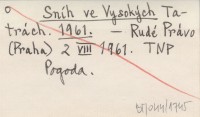 Sníh ve Vysokých Ta-
trách. 1961. — Rudé Právo
(Praha) 2 VIII 1961. TNP
Pogoda.